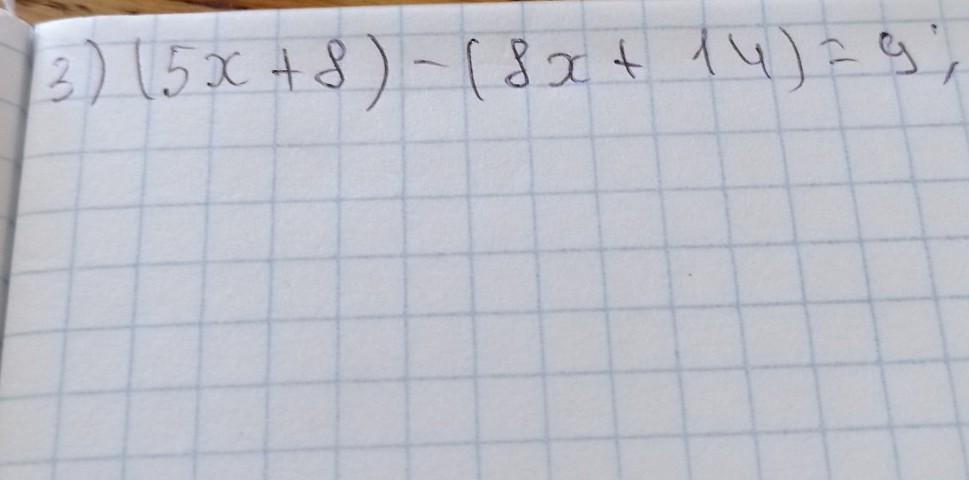 3) (5x + 8) - (8x + 14) = 9;